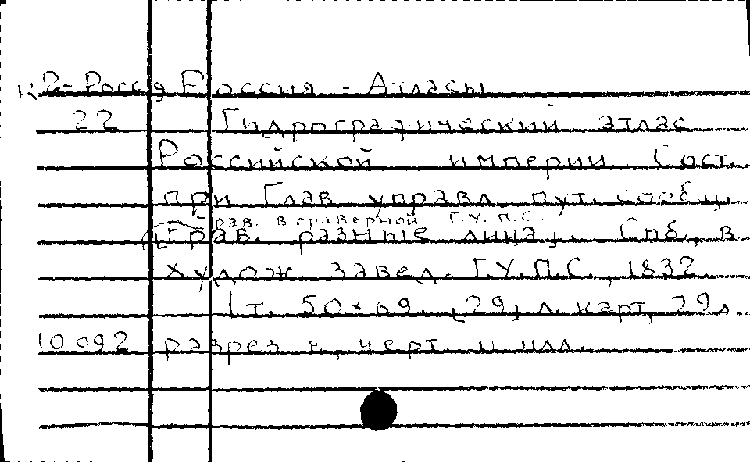 К2-Россия Россия - Атласы
22 Гидрографический атлас
Российской империи. Сост.
при Глав. управл. пут. сообщ.
Грав. в граверной Г.У.П.С.
Грав. разные лица]. Спб., в
худож. завед. Г.У.П.С., 1832.
1 т. 50×69. [29] л. карт, 29 л.
10092 разрез., черт. и илл.